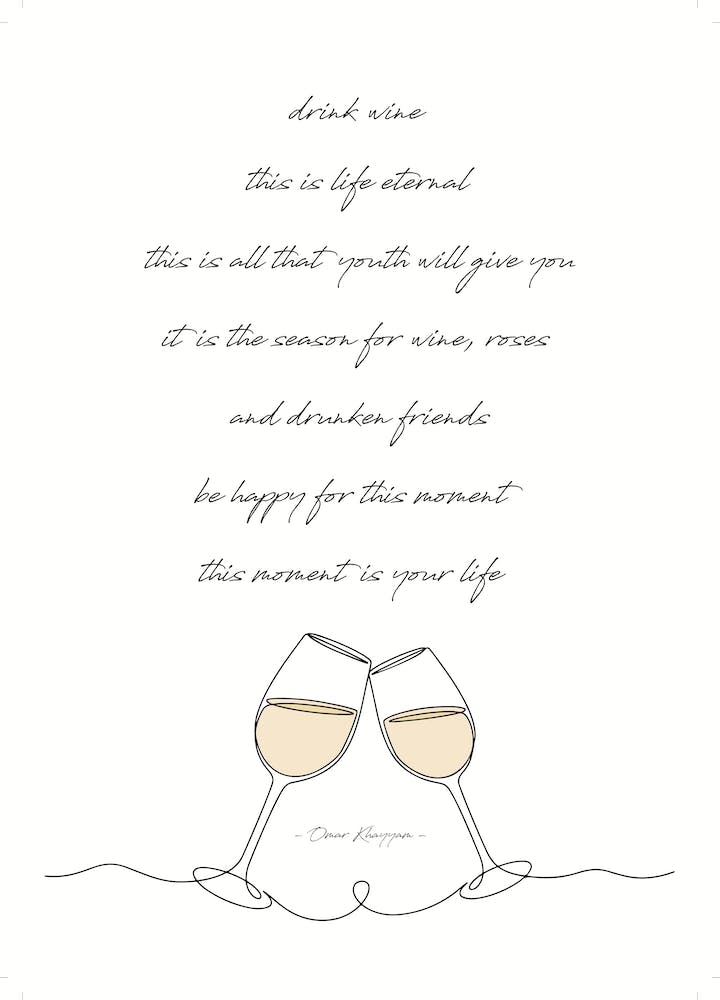 drink wine
this is life eternal
this is all that youth will give you
it is the season for wine, roses
and drunken friends
be happy for this moment
this moment is your life
- Omar Khayyam -